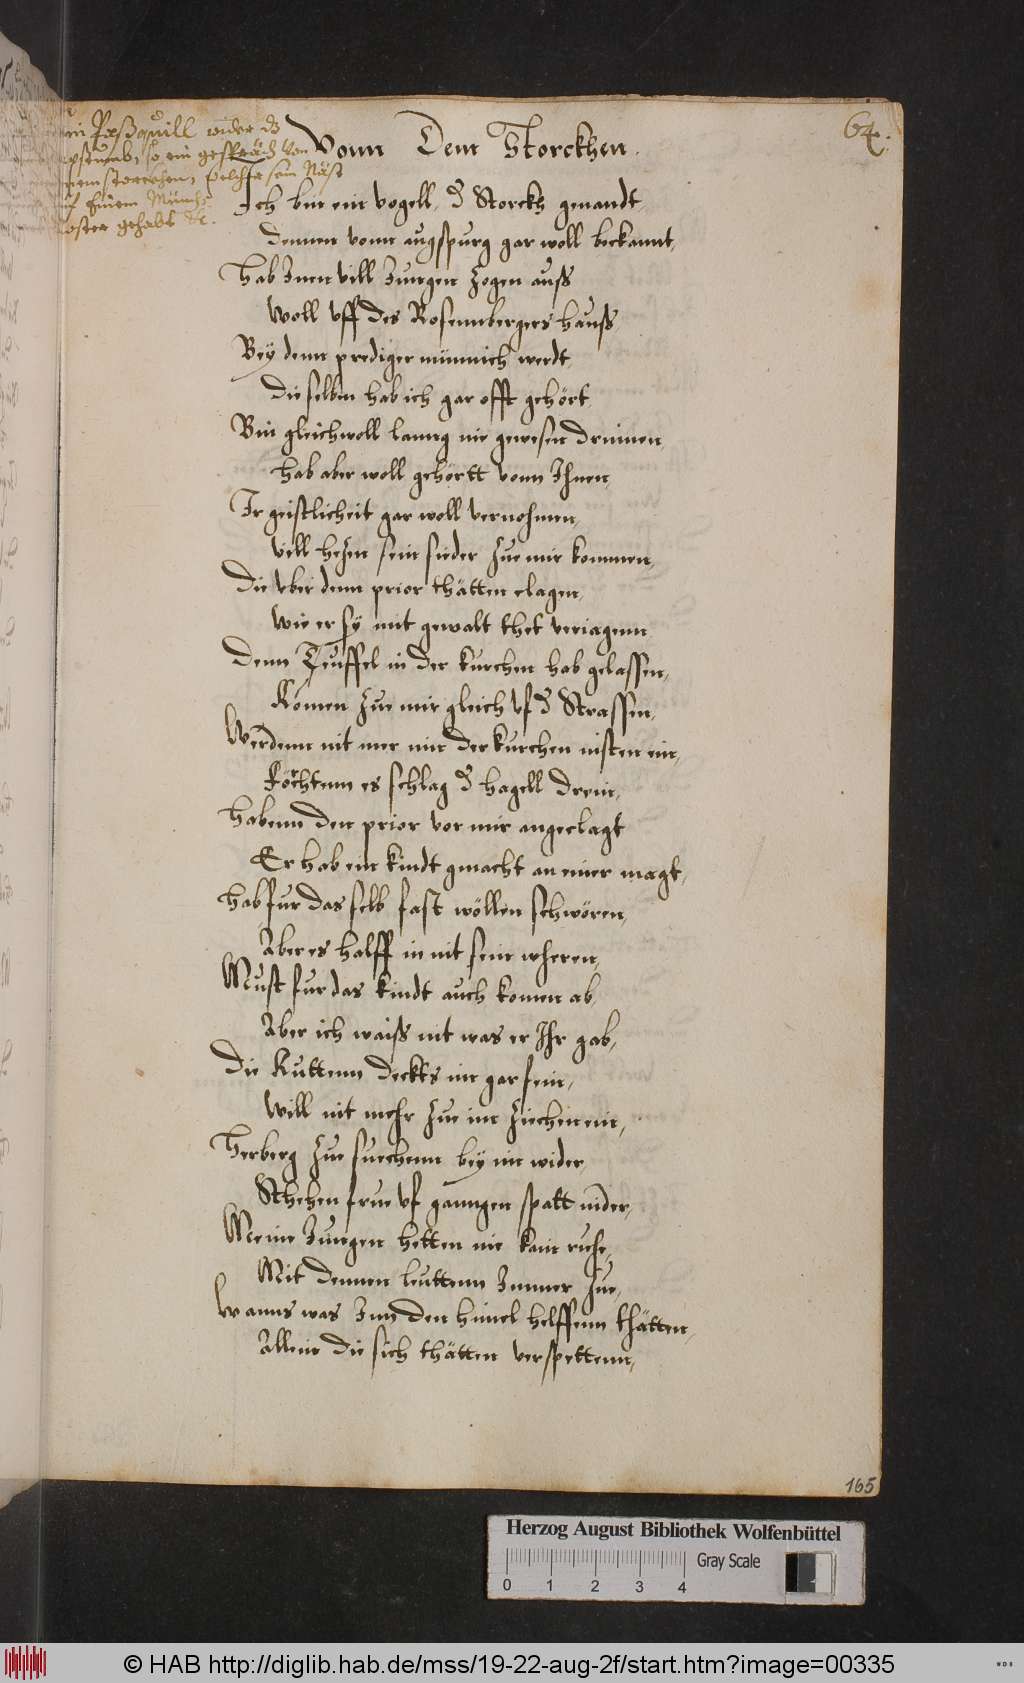 ein Paßquill wider dz
bapstumb, so ein gespräch von
einem storcchen, welcher sein Näst
uf Einem Münchs
closter gehabt &c.
64.
Vonn Dem Storckhen.
Ich bin ein vogell, d Storckh genandt,
Dennen vonn augspurg gar woll bekannt,
Hab Inen vill Jungen zogen auß
Woll uff des Rosennbergers Hauß
Bey denn prediger münnich werdt,
Die selben hab ich gar offt gehört,
Bin gleichwoll lanng nie gewesen drinnen,
Hab aber woll gehörtt vonn Ihnen,
Ir geistlicheit gar woll vernohmen,
Vill hezen sein sieder zue mir kommen,
Die uber denn prior thätten clagen,
Wie er sy mit gewalt thet veriagenn
Denn Teuffel in der kürchen hab gelassen,
Komen zue mir gleich uf d Strassen,
Werdenn nit mer inn der kürchen nisten ein,
Förchtenn es schlag d hagell drein,
Habenn den prior vor mir angeclagt
Er hab ein kindt gmacht an einer magt,
Hab fur das selb fast wöllen schwören,
Aber es halff in nit sein wheren,
Must fur das kindt auch komen ab,
Aber ich waiß nit was er Ihr gab,
Die Kuttenn deckts im gar fein,
Will nit mehr zue im ziechen ein,
Herberg zue suechenn bey im wider,
Stehen frue uf ganngen spatt nider,
Meine Jungen hetten nie kain ruhe,
Mit dennen leuttenn Immer zue,
Wanns was Inn den himel helffenn thätten,
Allein die sich thätten verspettenn,
165
Herzog August Bibliothek Wolfenbüttel
Gray Scale
0 1 2 3 4
© HAB http://diglib.hab.de/mss/19-22-aug-2f/start.htm?image=00335